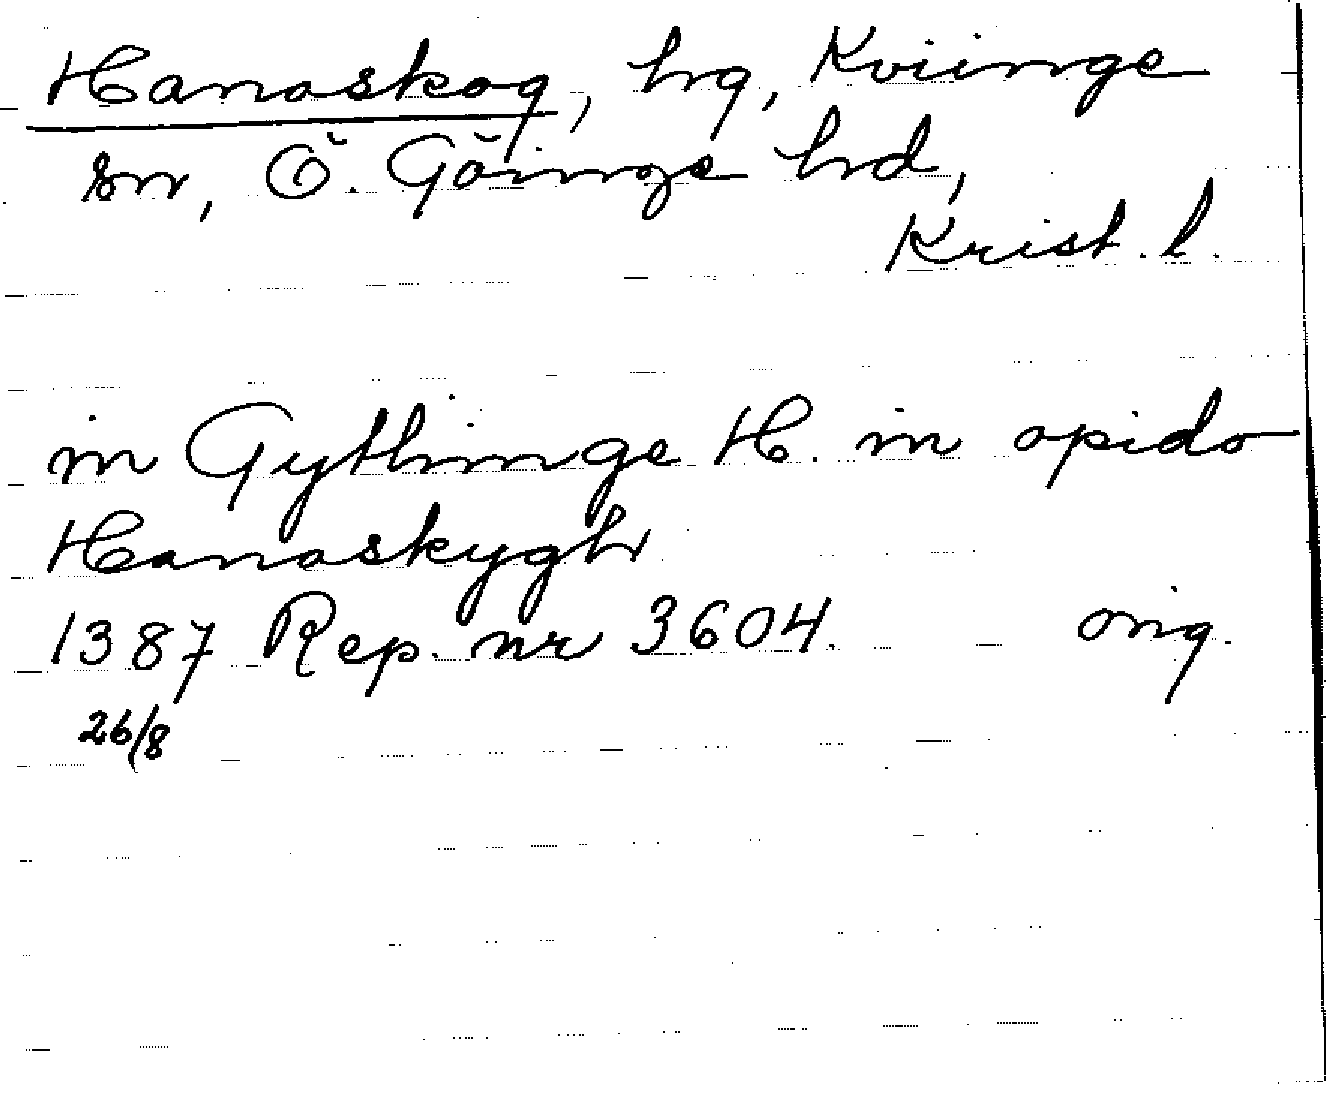 Hanaskog, hg, Kviinge
sn, Ö. Göinge hd,
Krist. l.
in Gythinge H. in opido
Hanaskygh
1387 Rep. nr 3604. orig.
26/8